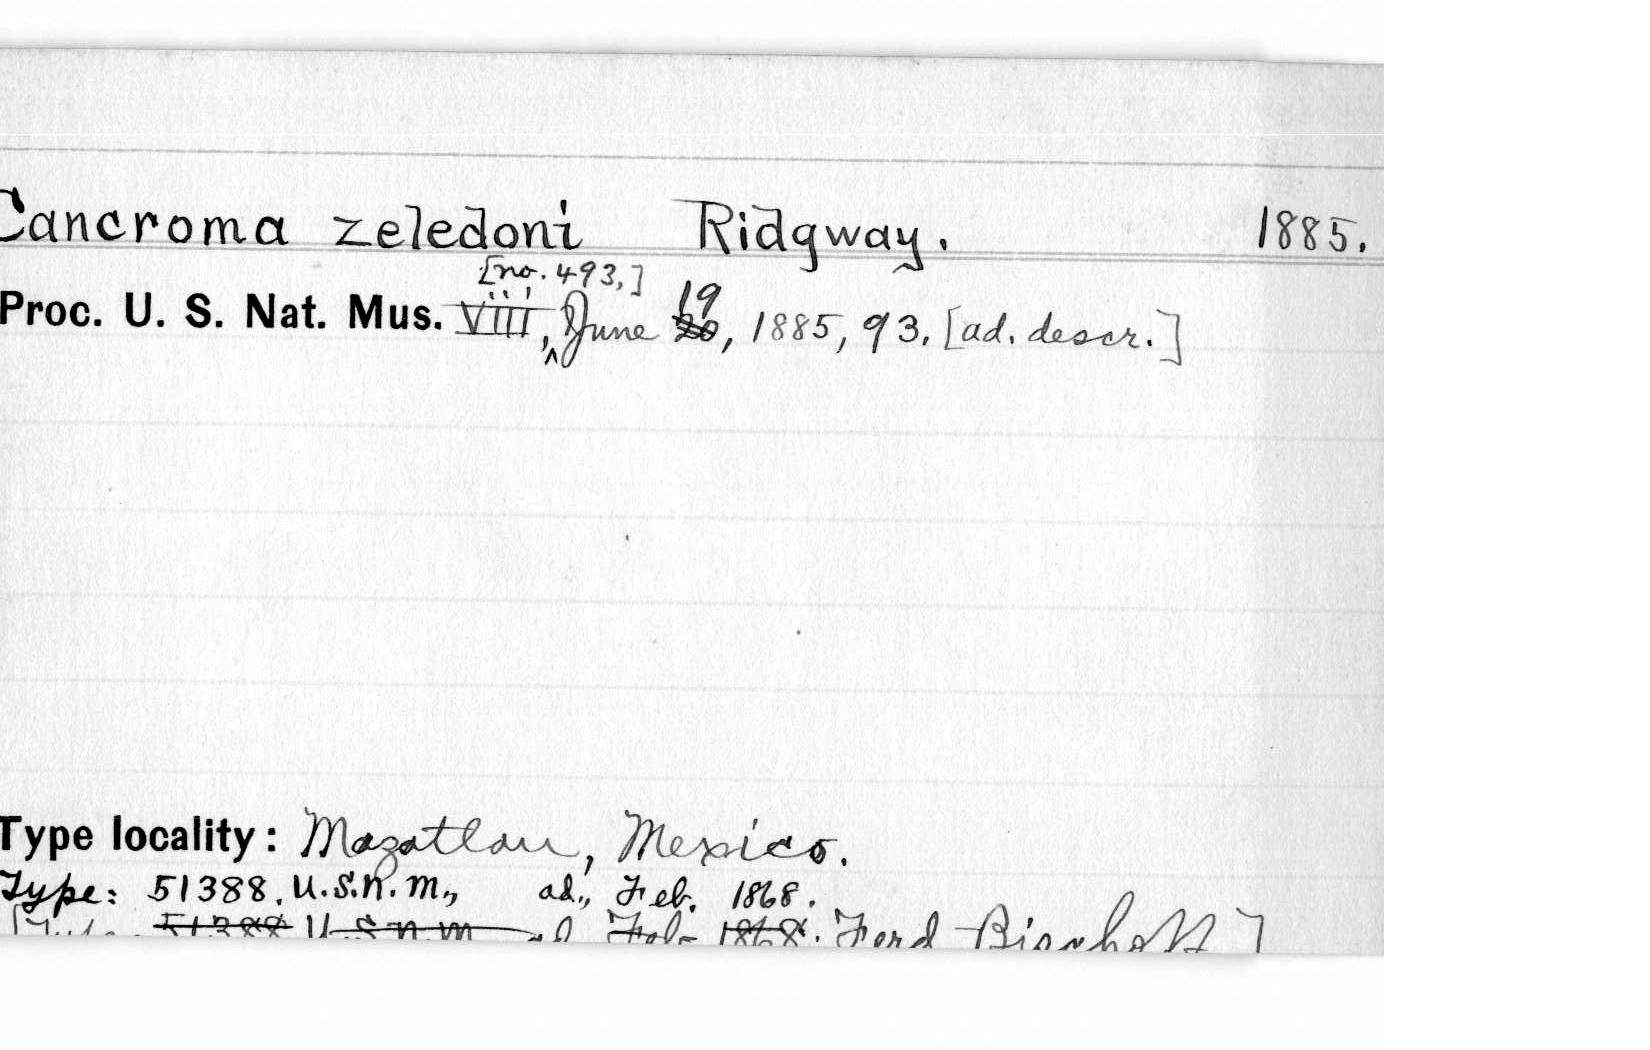 Cancroma zeledoni Ridgway. 1885.
[no. 493,]
Proc. U. S. Nat. Mus. VIII, June 19 20, 1885, 93. [ad. descr.]
Type locality: Mazatlan, Mexico.
Type: 51388, U.S.N.M., ad., Feb. 1868.
[Type. 51388 U.S.N.M. ad Feb. 1868. Ferd Bischoff]